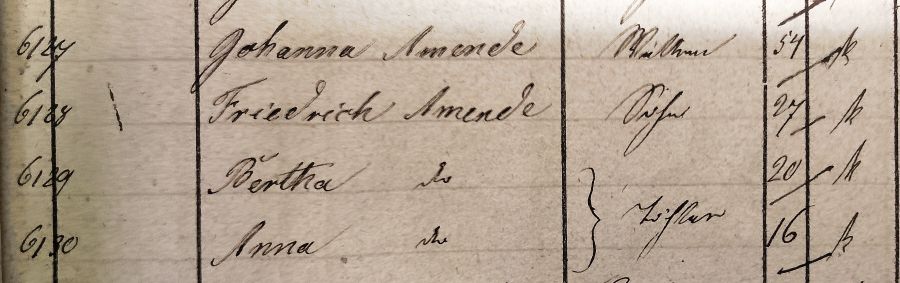 6127 Johanna Amende Wittwe 54
6128 Friedrich Amende Sohn 27
6129 Bertha do 20
6130 Anna do Töchter 16